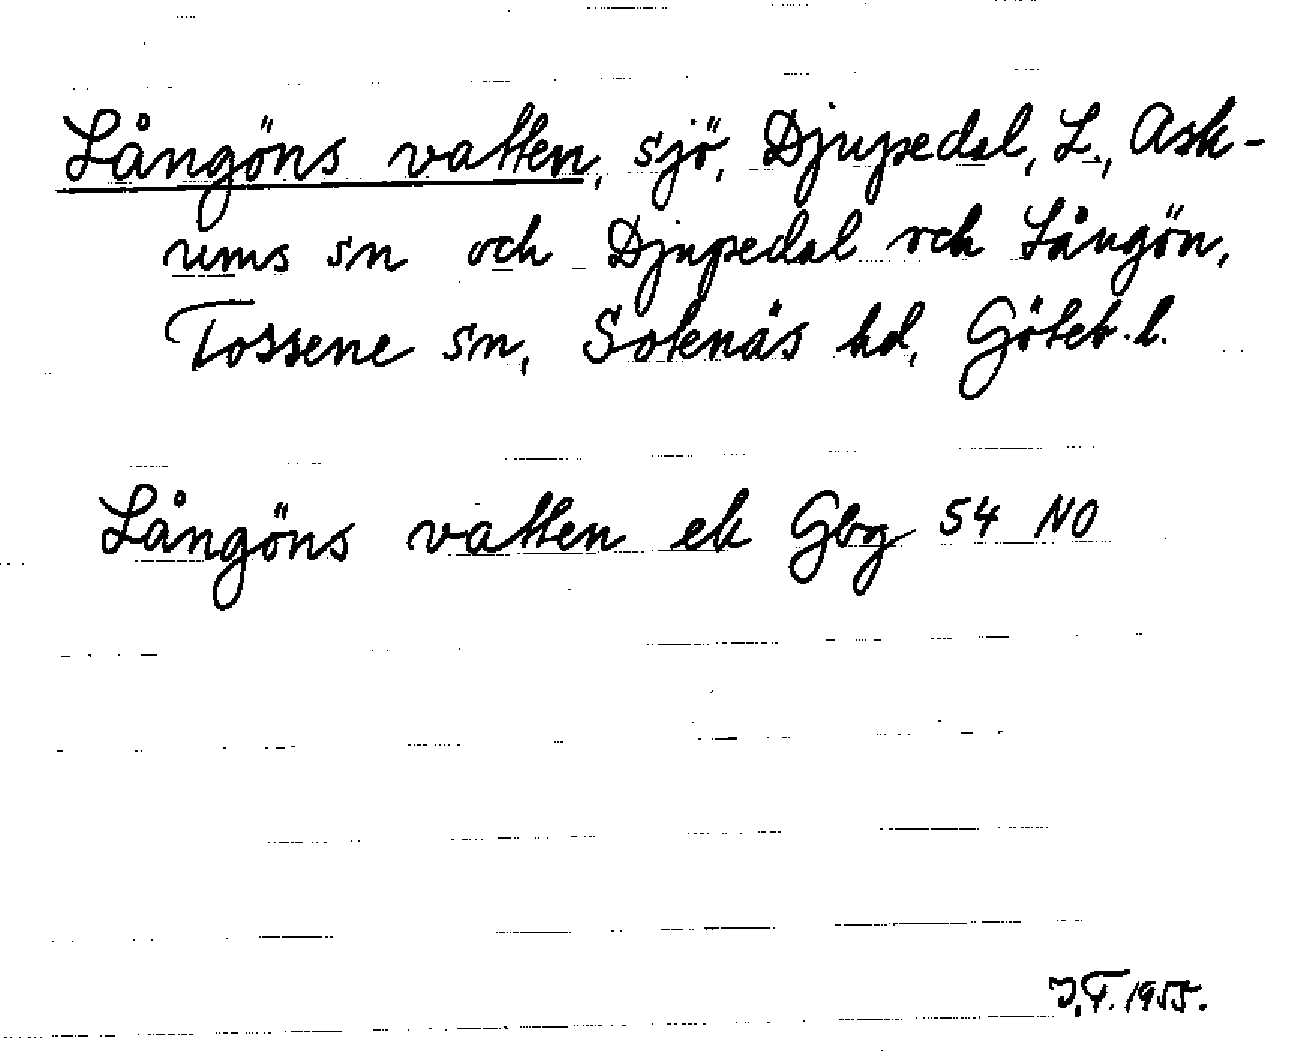 Långöns vatten, sjö, Djupedal, L., Ask-
ums sn och Djupedal och Långön,
Tossene sn, Sotenäs hd, Göteb. l.
Långöns vatten ek Gbg 54 NO
I.T. 1955.